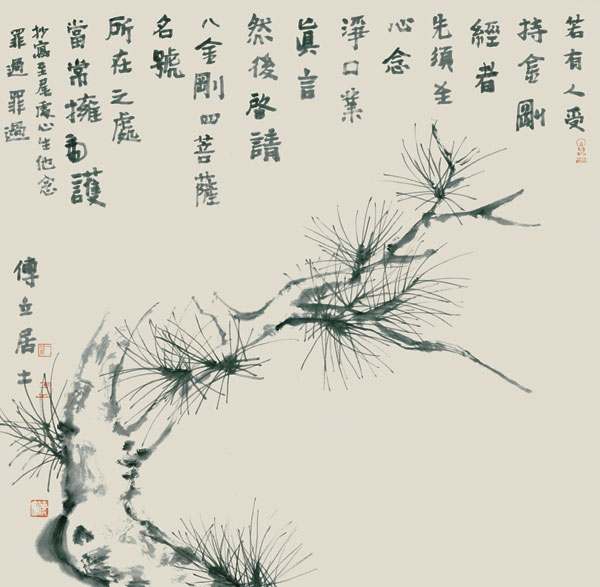 若有人受
持金剛
經者
先須至
心念
淨口業
眞言
然後啓請
八金剛四菩薩
名號
所在之處
當常擁護
抄寫至尾處心生他念
罪過罪過
傅立居士